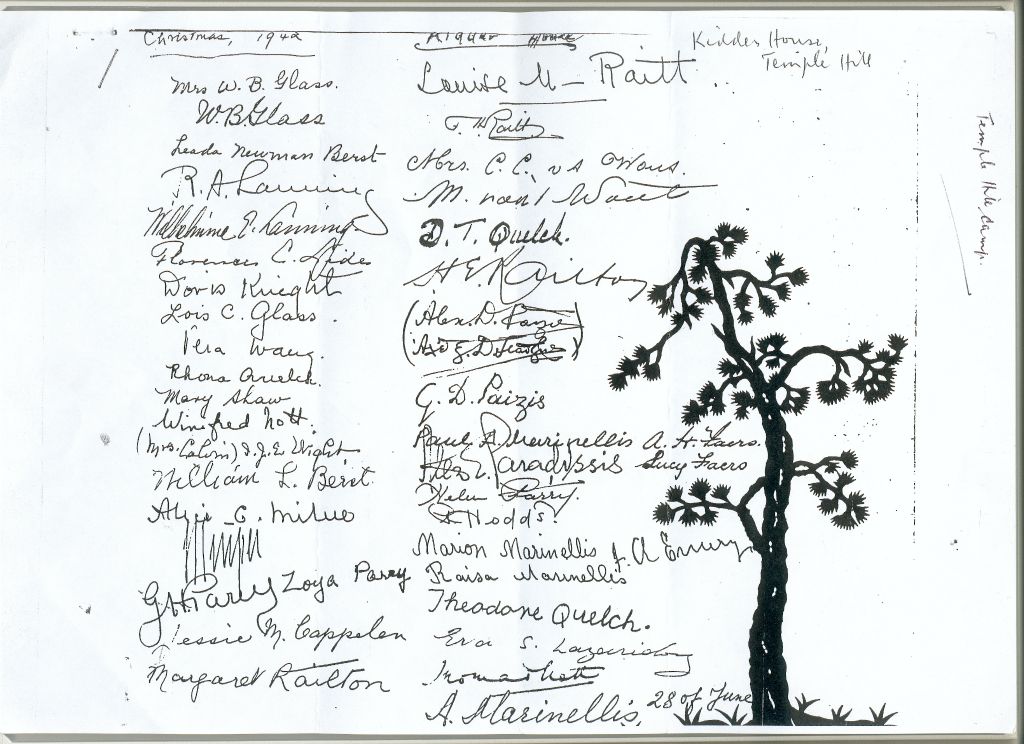 Christmas, 1942
House
Kidder House,
Temple Hill
Temple Hill Camp.
Mrs W. B. Glass.
W.B. Glass
Leada Newman Berst
R. A. Lanning
Wilhelmine E. Lanning
Florence C.
Doris Knight
Lois C. Glass.
Vera Wang.
Rhona Quelch.
Mary Shaw
Winifred Nott.
(Mrs. Calvin) I. J. E. Wight
William L. Berst
C. Milne
G. H. Parry Zoya Parry
Jessie M. Cappelen
Margaret Railton
Louise M- Raitt.
T. H. Raitt
Mrs. C. C.
M.
D. T. Quelch.
H E Railton
(Alex. D.
G. D. Paizis
Paul A. Marinellis A. H. Faers.
Paradissis Lucy Faers
Helen Parry.
Hodds.
Marion Marinellis J. A Emery
Raisa Marinellis
Theodore Quelch.
S. Lazaridou
A. Marinellis, 28 of June